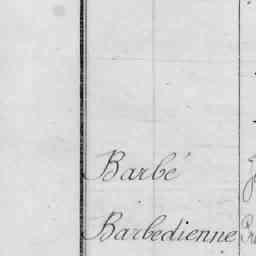 Barbé
Barbedienne